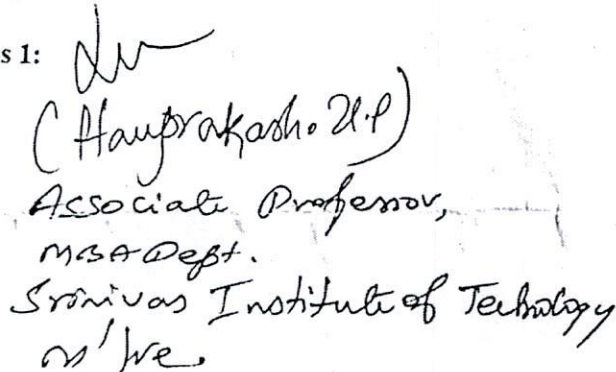 s 1:
(Hariprakash. U.P)
Associate Professor,
MBA Dept.
Srinivas Institute of Technology
M'lre.